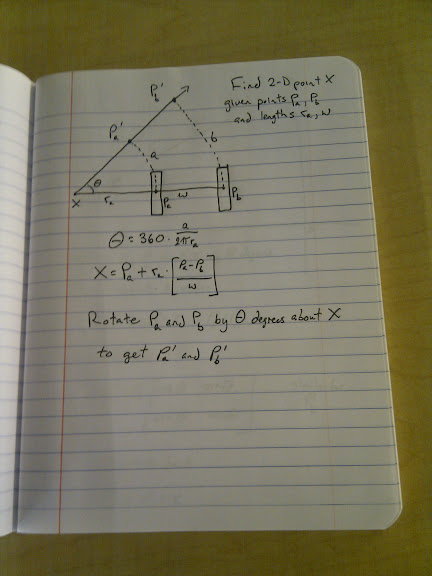 Find 2-D point X
given points Pa, Pb
and lengths ra, w
Pb'
Pa'
b
a
θ
X
ra
Pa
w
Pb
θ = 360 · a / 2πra
X = Pa + ra · [Pa - Pb / w]
Rotate Pa and Pb by θ degrees about X
to get Pa' and Pb'